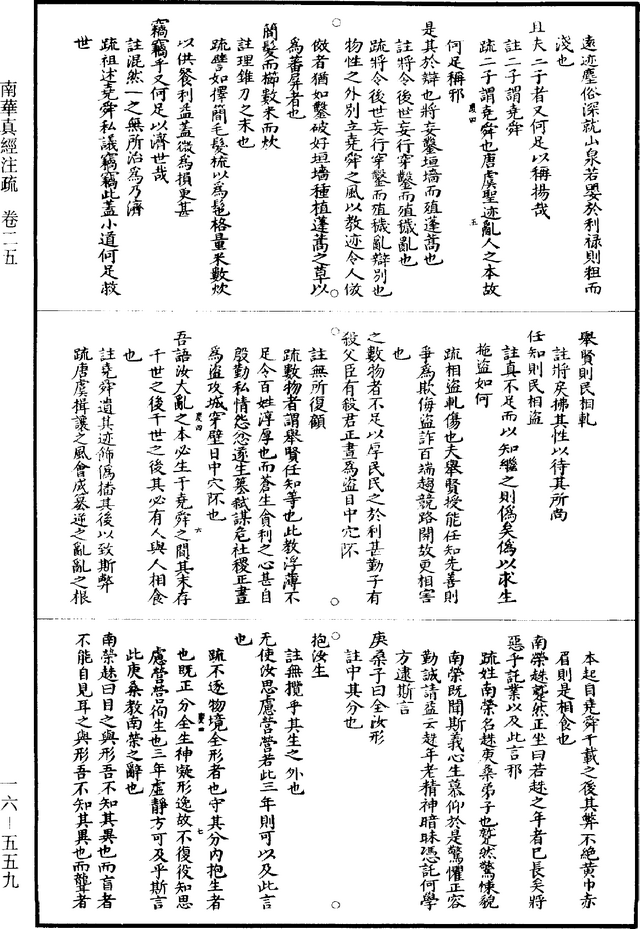 南華真經注疏　卷二五
遠迹塵俗深就山泉若嬰於利祿則粗而
淺也
且夫二子者又何足以稱揚哉
註二子謂堯舜
疏二子謂堯舜也唐虞聖迹亂人之本故
何足稱邪
是其於辯也將妄鑿垣墻而殖蓬蒿也
註將令後世妄行穿鑿而殖穢亂也
疏將令後世妄行穿鑿而殖穢亂辯別也
物性之外別立堯舜之風以教迹令人倣
倣者猶如鑿破好垣墻種植蓬蒿之草以
為蕃屏者也
簡髮而櫛數米而炊
註理錐刀之末也
疏譬如擇簡毛髮梳以為髢格量米數炊
以供餐利益蓋微為損更甚
竊竊乎又何足以濟世哉
註混然一之無所治為乃濟
疏祖述堯舜私議竊竊此蓋小道何足救
世
舉賢則民相軋
註將戾拂其性以待其所尚
任知則民相盜
註真不足而以知繼之則偽矣偽以求生
非盜如何
疏相盜軋傷也夫舉賢授能任知先善則
爭為欺侮盜詐百端趨競路開故更相害
也
之數物者不足以厚民民之於利甚勤子有
殺父臣有殺君正晝為盜日中穴阫
註無所復顧
疏數物者謂舉賢任知等也此教浮薄不
足令百姓淳厚也而蒼生貪利之心甚自
殷勤私情怨忿遂生篡弒謀危社稷正晝
為盜攻城穿壁日中穴阫也
吾語汝大亂之本必生于堯舜之間其末存
千世之後千世之後其必有人與人相食
也
註堯舜遺其迹飾偽播其後以致斯弊
疏唐虞揖讓之風會成篡逆之亂亂之根
本起自堯舜千載之後其弊不絕黃巾赤
眉則是相食也
南榮趎蹵然正坐曰若趎之年者已長矣將
惡乎託業以及此言邪
疏姓南榮名趎庚桑弟子也蹵然驚悚貌
南榮既聞斯義心生慕仰於是驚懼正容
勤誠請益云趎年老精神暗昧憑託何學
方逮斯言
庚桑子曰全汝形
註中其分也
抱汝生
註無攬乎其生之外也
无使汝思慮營營若此三年則可以及此言
也
疏不逐物境全形者也守其分內抱生者
也既正分全生神凝形逸故不復役知思
慮營營徇生也三年虛靜方可及乎斯言
此庚桑教南榮之辭也
南榮趎曰目之與形吾不知其異也而盲者
不能自見耳之與形吾不知其異也而聾者
一六－五五九